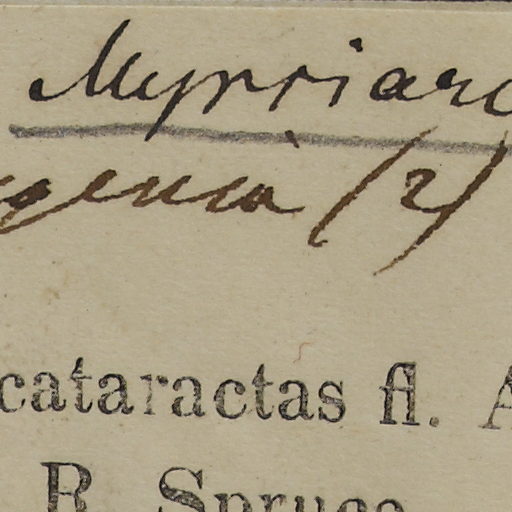 Myrciaro
ugenia (2)
cataractas fl. A
R. Spruce